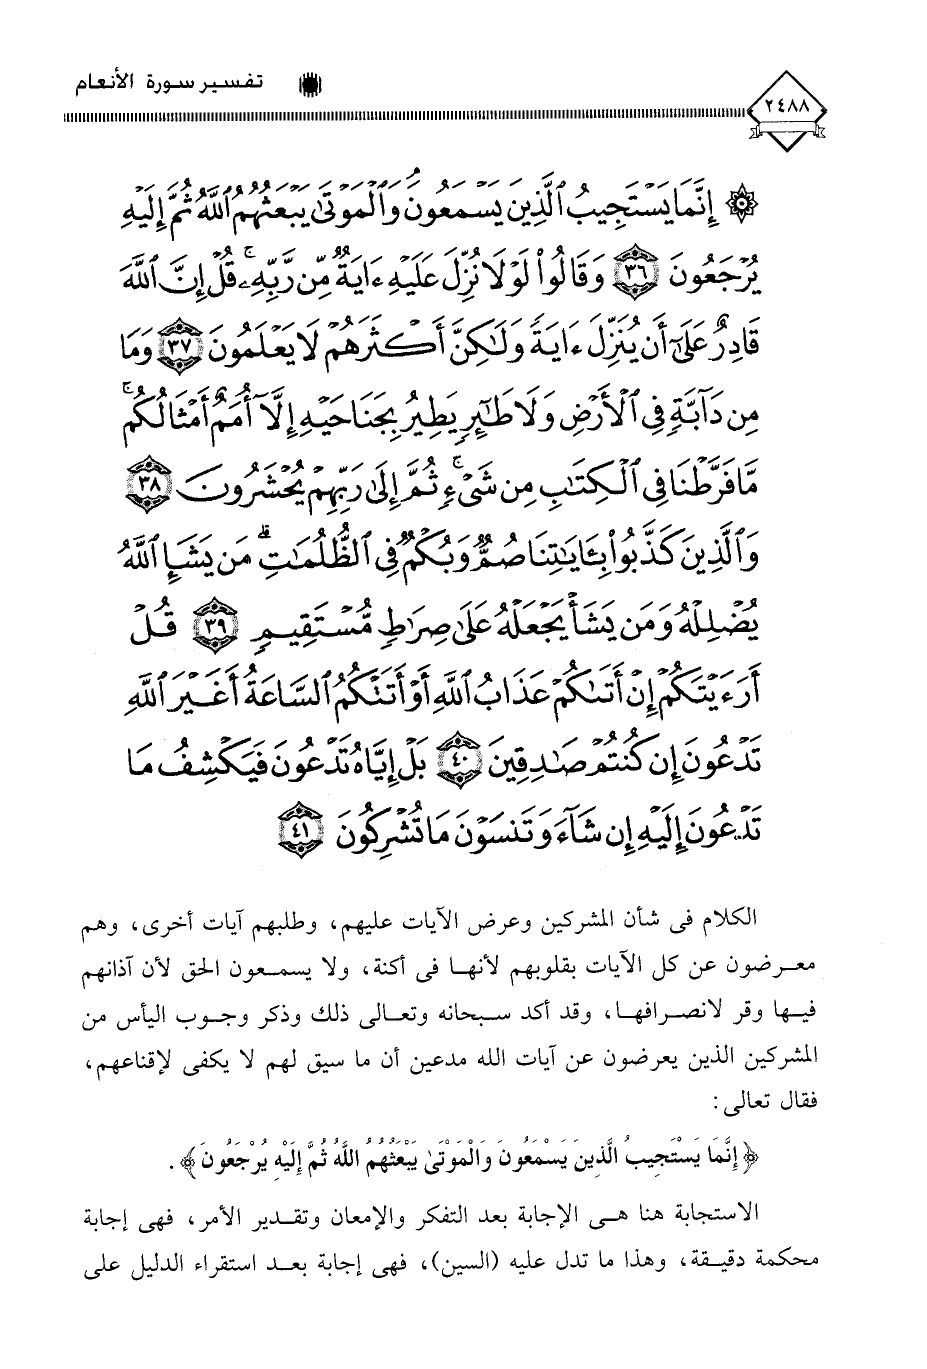 تفسير سورة الأنعام
٢٤٨٨
۞ إِنَّمَا يَسْتَجِيبُ ٱلَّذِينَ يَسْمَعُونَۘ وَٱلْمَوْتَىٰ يَبْعَثُهُمُ ٱللَّهُ ثُمَّ إِلَيْهِ
يُرْجَعُونَ ٣٦ وَقَالُوا۟ لَوْلَا نُزِّلَ عَلَيْهِ ءَايَةٌ مِّن رَّبِّهِۦۚ قُلْ إِنَّ ٱللَّهَ
قَادِرٌ عَلَىٰٓ أَن يُنَزِّلَ ءَايَةً وَلَٰكِنَّ أَكْثَرَهُمْ لَا يَعْلَمُونَ ٣٧ وَمَا
مِن دَآبَّةٍ فِى ٱلْأَرْضِ وَلَا طَٰٓئِرٍ يَطِيرُ بِجَنَاحَيْهِ إِلَّآ أُمَمٌ أَمْثَالُكُمۚ
مَّا فَرَّطْنَا فِى ٱلْكِتَٰبِ مِن شَىْءٍۚ ثُمَّ إِلَىٰ رَبِّهِمْ يُحْشَرُونَ ٣٨
وَٱلَّذِينَ كَذَّبُوا۟ بِـَٔايَٰتِنَا صُمٌّ وَبُكْمٌ فِى ٱلظُّلُمَٰتِۗ مَن يَشَإِ ٱللَّهُ
يُضْلِلْهُ وَمَن يَشَأْ يَجْعَلْهُ عَلَىٰ صِرَٰطٍ مُّسْتَقِيمٍ ٣٩ قُلْ
أَرَءَيْتَكُمْ إِنْ أَتَىٰكُمْ عَذَابُ ٱللَّهِ أَوْ أَتَتْكُمُ ٱلسَّاعَةُ أَغَيْرَ ٱللَّهِ
تَدْعُونَ إِن كُنتُمْ صَٰدِقِينَ ٤٠ بَلْ إِيَّاهُ تَدْعُونَ فَيَكْشِفُ مَا
تَدْعُونَ إِلَيْهِ إِن شَآءَ وَتَنسَوْنَ مَا تُشْرِكُونَ ٤١
الكلام فى شأن المشركين وعرض الآيات عليهم، وطلبهم آيات أخرى، وهم
معرضون عن كل الآيات بقلوبهم لأنها فى أكنة، ولا يسمعون الحق لأن آذانهم
فيها وقر لانصرافها، وقد أكد سبحانه وتعالى ذلك وذكر وجوب اليأس من
المشركين الذين يعرضون عن آيات الله مدعين أن ما سيق لهم لا يكفى لإقناعهم،
فقال تعالى:
﴿إِنَّمَا يَسْتَجِيبُ الَّذِينَ يَسْمَعُونَ وَالْمَوْتَىٰ يَبْعَثُهُمُ اللَّهُ ثُمَّ إِلَيْهِ يُرْجَعُونَ﴾.
الاستجابة هنا هى الإجابة بعد التفكر والإمعان وتقدير الأمر، فهى إجابة
محكمة دقيقة، وهذا ما تدل عليه (السين)، فهى إجابة بعد استقراء الدليل على